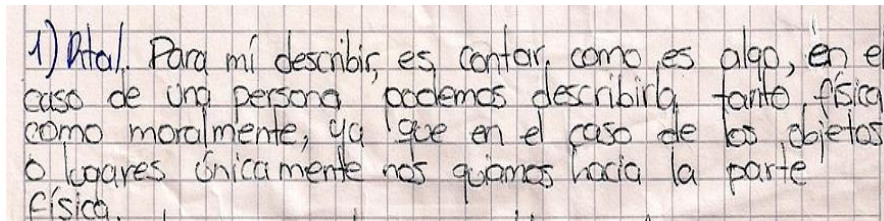 1) Oral. Para mí describir, es contar, como es algo, en el
caso de una persona podemos describirla tanto, física
como moralmente, ya que en el caso de los objetos
o lugares únicamente nos guiamos hacia la parte
física.